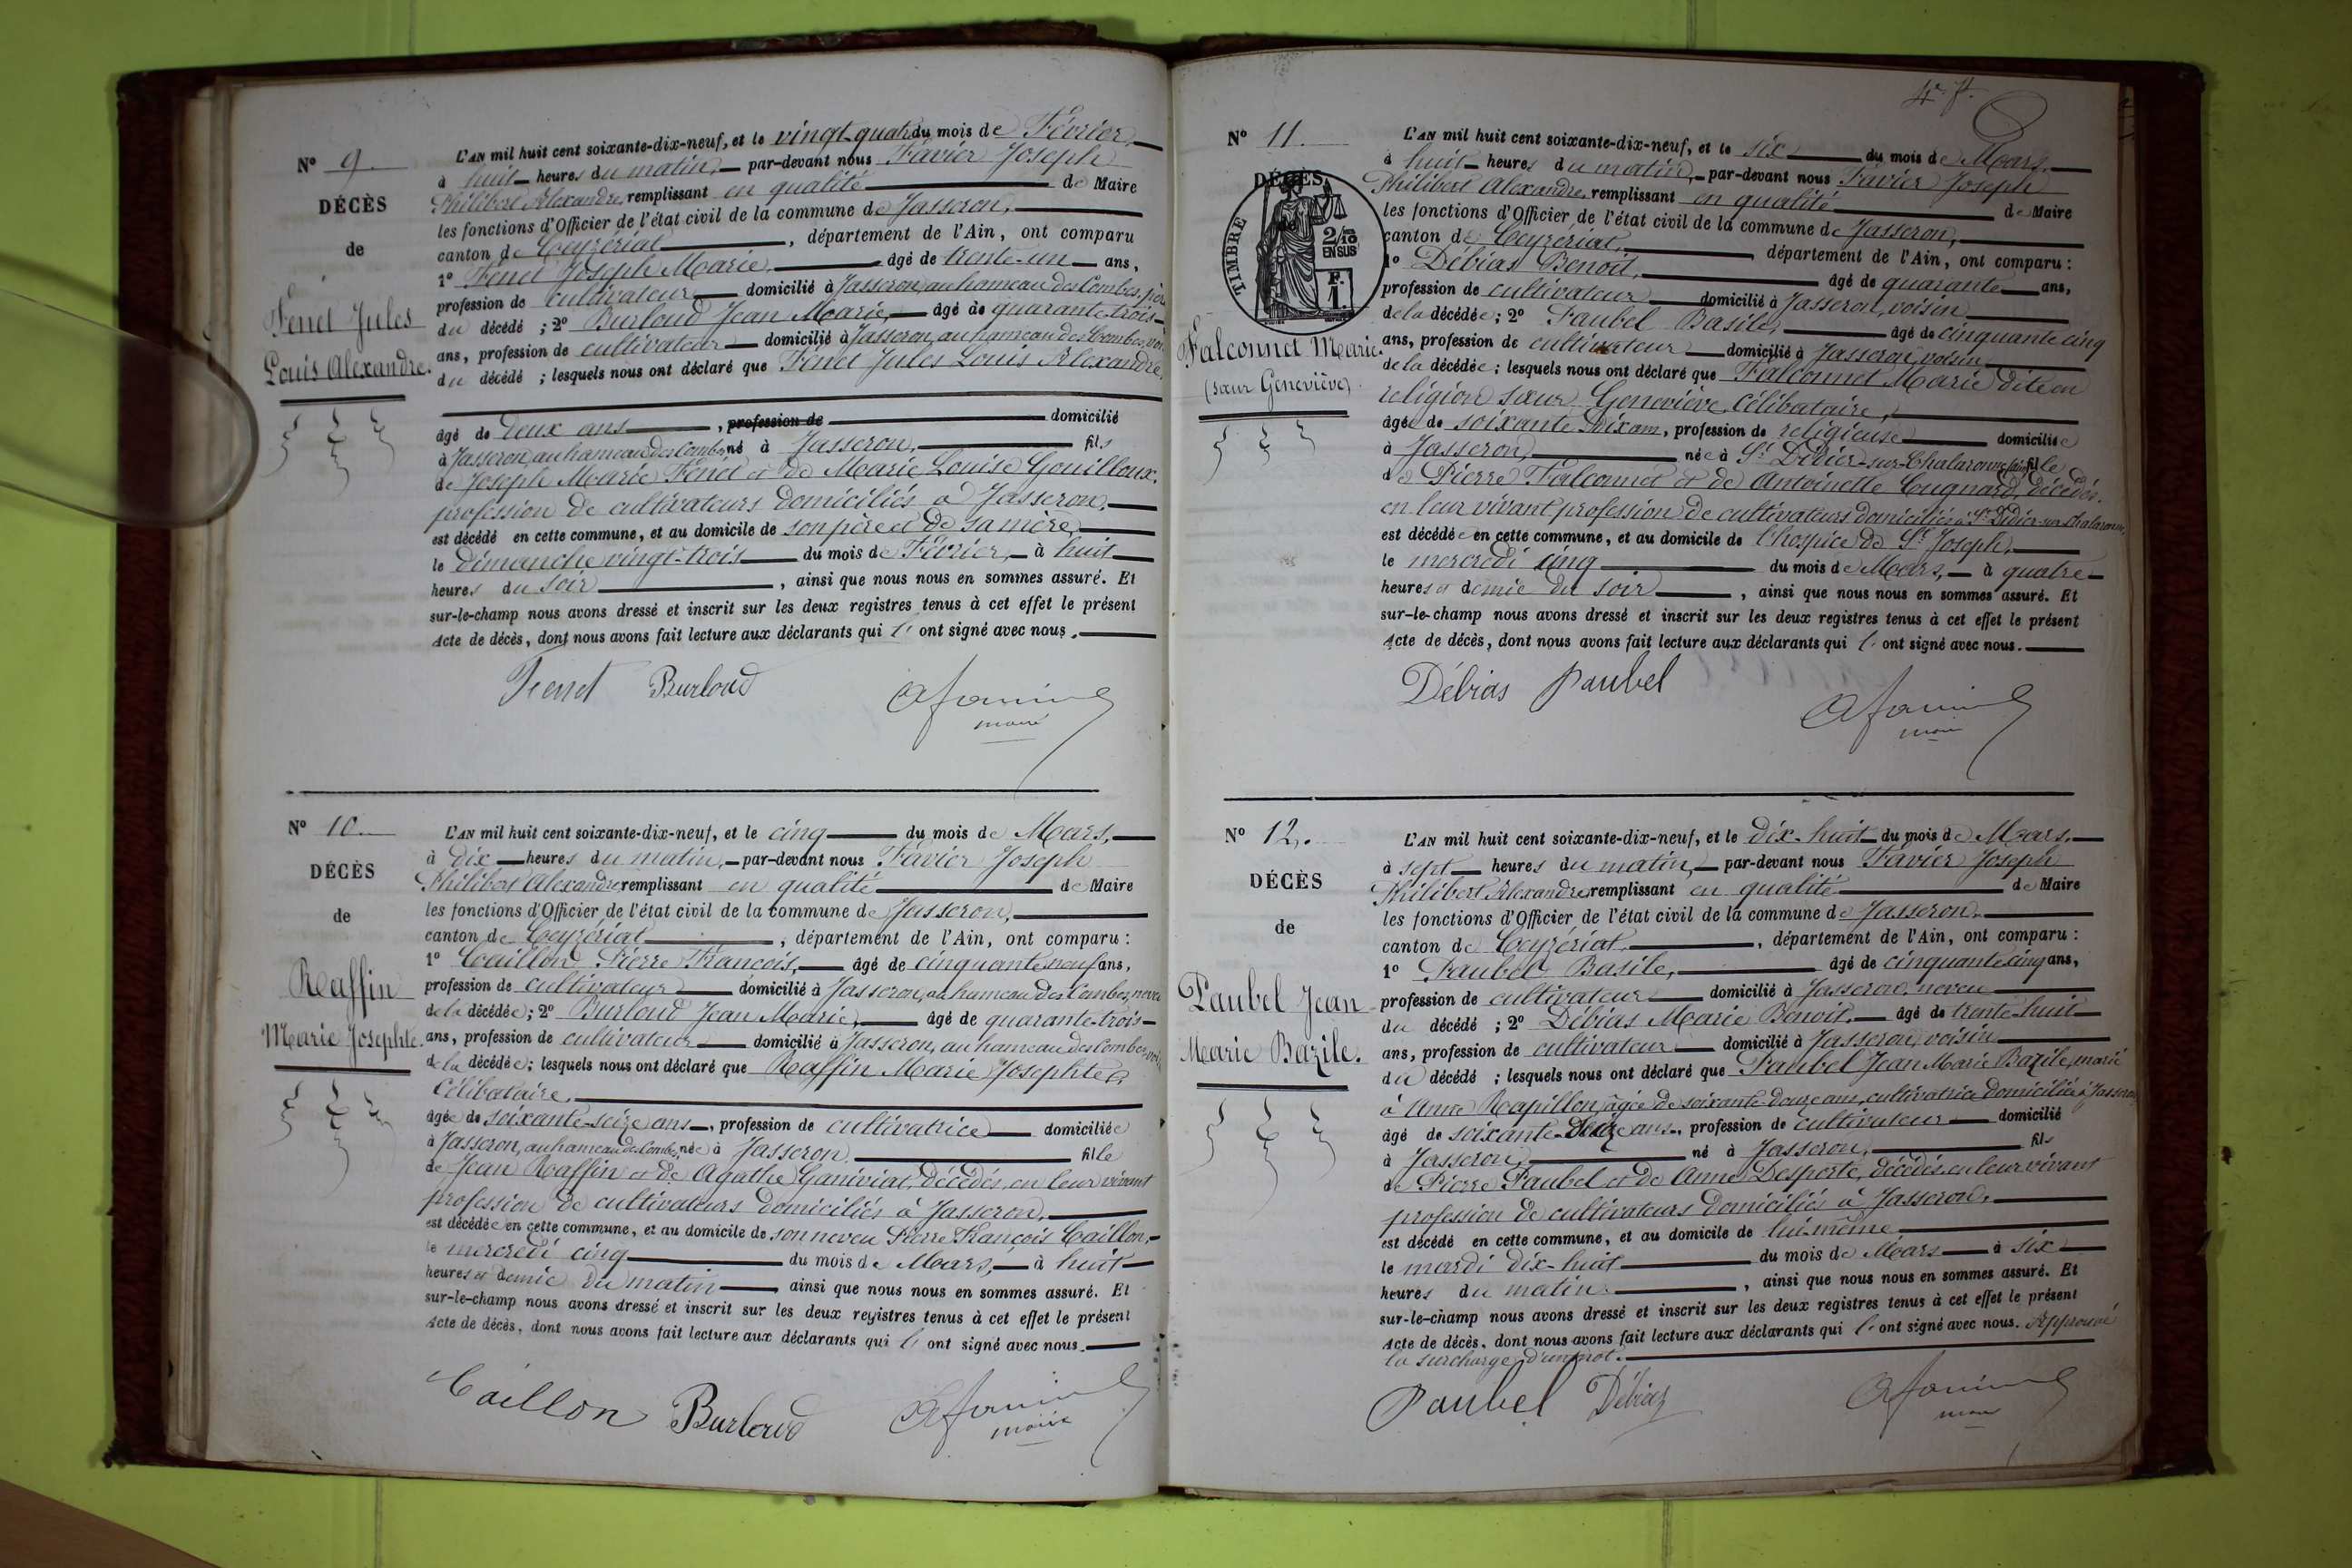 N° 9.
DÉCÈS
de
Fenet Jules
Louis Alexandre.
L'AN mil huit cent soixante-dix-neuf, et le vingt-quatre du mois de Février,
à huit heures du matin, par-devant nous Favier Joseph
Philibert Alexandre, remplissant en qualité de Maire
les fonctions d'Officier de l'état civil de la commune de Jasseron,
canton de Ceyzériat, département de l'Ain, ont comparu
1° Fenet Joseph Marie, âgé de trente-un ans,
profession de cultivateur domicilié à Jasseron, au hameau des Combes, père
du décédé ; 2° Burloud Jean Marie, âgé de quarante-trois
ans, profession de cultivateur domicilié à Jasseron, au hameau des Combes, voi
du décédé ; lesquels nous ont déclaré que Fenet Jules Louis Alexandre,
âgé de deux ans, profession de domicilié
à Jasseron, au hameau des Combes, né à Jasseron, fils
de Joseph Marie Fenet et de Marie Louise Gouilloux,
profession de cultivateurs domiciliés à Jasseron,
est décédé en cette commune, et au domicile de son père et de sa mère,
le dimanche vingt-trois du mois de Février, à huit
heures du soir, ainsi que nous nous en sommes assuré. Et
sur-le-champ nous avons dressé et inscrit sur les deux registres tenus à cet effet le présent
Acte de décès, dont nous avons fait lecture aux déclarants qui l' ont signé avec nous.
Fenet Burloud
maire
N° 10.
DÉCÈS
de
Raffin
Marie Josephte.
L'AN mil huit cent soixante-dix-neuf, et le cinq du mois de Mars,
à dix heures du matin, par-devant nous Favier Joseph
Philibert Alexandre, remplissant en qualité de Maire
les fonctions d'Officier de l'état civil de la commune de Jasseron,
canton de Ceyzériat, département de l'Ain, ont comparu :
1° Caillon Pierre François, âgé de cinquante-neuf ans,
profession de cultivateur domicilié à Jasseron, au hameau des Combes, neveu
de la décédée ; 2° Burloud Jean Marie, âgé de quarante-trois
ans, profession de cultivateur domicilié à Jasseron, au hameau des Combes, voi
de la décédée ; lesquels nous ont déclaré que Raffin Marie Josephte,
Célibataire,
âgée de soixante-seize ans, profession de cultivatrice domiciliée
à Jasseron, au hameau des Combes, née à Jasseron, fille
de Jean Raffin et de Agathe Ganiviat, décédés, en leur vivant
profession de cultivateurs domiciliés à Jasseron,
est décédée en cette commune, et au domicile de son neveu Pierre François Caillon,
le mercredi cinq du mois de Mars, à huit
heures et demie du matin, ainsi que nous nous en sommes assuré. Et
sur-le-champ nous avons dressé et inscrit sur les deux registres tenus à cet effet le présent
Acte de décès, dont nous avons fait lecture aux déclarants qui l' ont signé avec nous.
Caillon Burloud
maire
N° 11.
DÉCÈS
TIMBRE
2/10
EN SUS
F.
1.
Falconnet Marie.
(sœur Geneviève)
L'AN mil huit cent soixante-dix-neuf, et le six du mois de Mars,
à huit heures du matin, par-devant nous Favier Joseph
Philibert Alexandre, remplissant en qualité de Maire
les fonctions d'Officier de l'état civil de la commune de Jasseron,
canton de Ceyzériat, département de l'Ain, ont comparu :
1° Débias Benoit, âgé de quarante ans,
profession de cultivateur domicilié à Jasseron, voisin
de la décédée ; 2° Paubel Basile, âgé de cinquante cinq
ans, profession de cultivateur domicilié à Jasseron, voisin
de la décédée ; lesquels nous ont déclaré que Falconnet Marie dite en
religion sœur Geneviève, Célibataire,
âgée de soixante dix ans, profession de religieuse domiciliée
à Jasseron, née à St Didier-sur-Chalaronne (Ain) fille
de Pierre Falconnet et de Antoinette Cugnard, décédés,
en leur vivant profession de cultivateurs domiciliés à St Didier-sur-Chalaronne,
est décédée en cette commune, et au domicile de l'hospice de St Joseph,
le mercredi cinq du mois de Mars, à quatre
heures et demie du soir, ainsi que nous nous en sommes assuré. Et
sur-le-champ nous avons dressé et inscrit sur les deux registres tenus à cet effet le présent
Acte de décès, dont nous avons fait lecture aux déclarants qui l' ont signé avec nous.
Débias Paubel
maire
N° 12.
DÉCÈS
de
Paubel Jean
Marie Bazile.
L'AN mil huit cent soixante-dix-neuf, et le dix-huit du mois de Mars,
à sept heures du matin, par-devant nous Favier Joseph
Philibert Alexandre, remplissant en qualité de Maire
les fonctions d'Officier de l'état civil de la commune de Jasseron,
canton de Ceyzériat, département de l'Ain, ont comparu :
1° Paubel Basile, âgé de cinquante cinq ans,
profession de cultivateur domicilié à Jasseron, neveu
du décédé ; 2° Débias Marie Benoit, âgé de trente-huit
ans, profession de cultivateur domicilié à Jasseron, voisin
du décédé ; lesquels nous ont déclaré que Paubel Jean Marie Bazile, marié
à Anne Rapillon, âgée de soixante-douze ans, cultivatrice domiciliée à Jasseron,
âgé de soixante-seize ans, profession de cultivateur domicilié
à Jasseron, né à Jasseron, fils
de Pierre Paubel et de Anne Desporte, décédés, en leur vivant
profession de cultivateurs domiciliés à Jasseron,
est décédé en cette commune, et au domicile de lui-même
le mardi dix-huit du mois de Mars à six
heures du matin, ainsi que nous nous en sommes assuré. Et
sur-le-champ nous avons dressé et inscrit sur les deux registres tenus à cet effet le présent
Acte de décès, dont nous avons fait lecture aux déclarants qui l' ont signé avec nous. Approuvé
la surcharge d'un mot.
Paubel Débias
maire